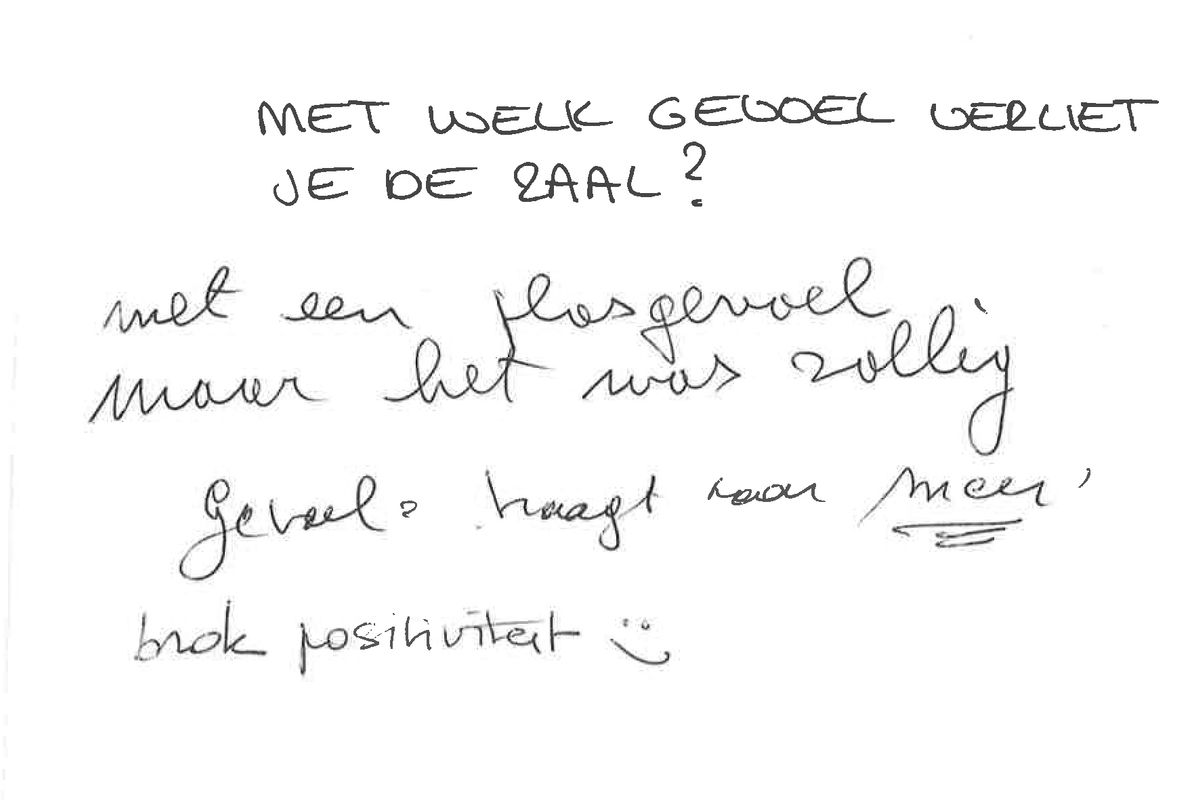 MET WELK GEVOEL VERLIET
JE DE ZAAL?
met een plasgevoel
maar het was zollig
Gevoel: smaakt naar meer!
brok positiviteit :)